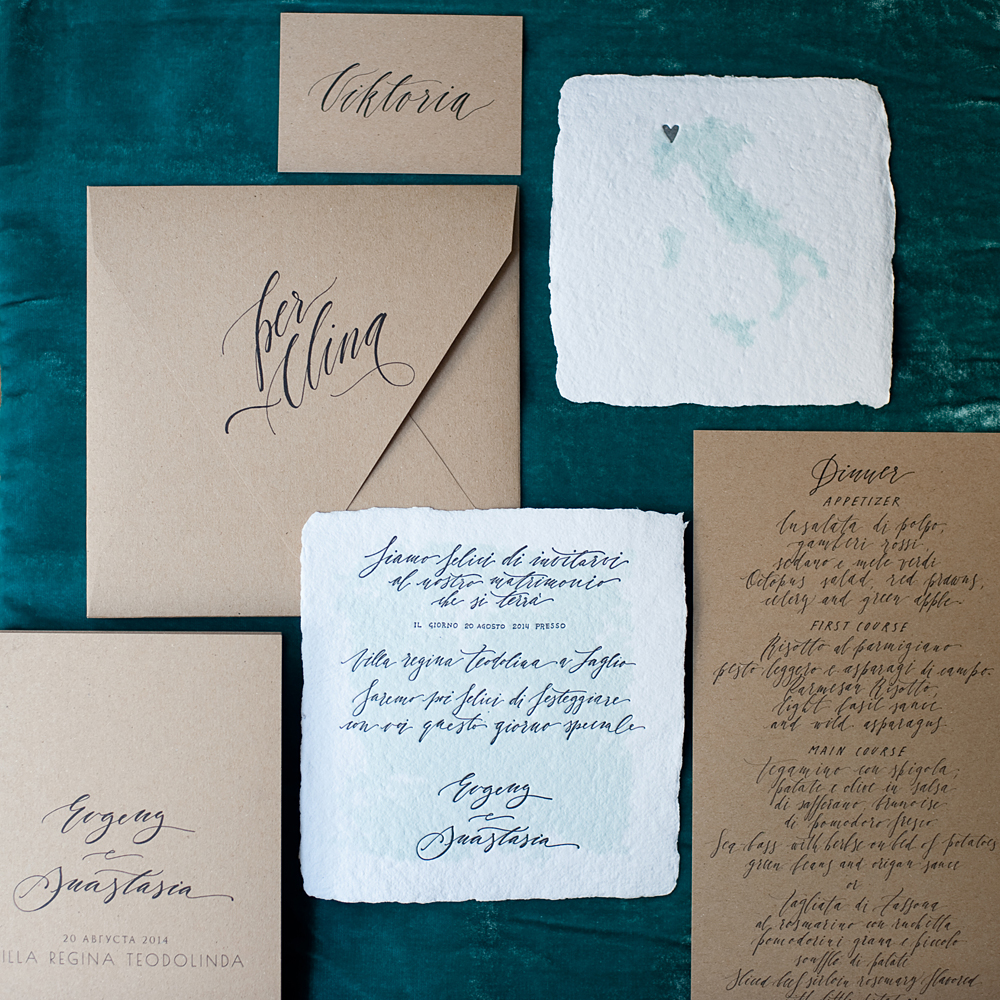 Viktoria
per
Elina
Siamo felici di invitarvi
al nostro matrimonio
che si terrà
IL GIORNO 20 AGOSTO 2014 PRESSO
Villa regina Teodolina a Laglio
Saremo poi felici di festeggiare
con voi questo giorno speciale
Evgeny
e
Anastasia
Evgeny
e
Anastasia
20 АВГУСТА 2014
ILLA REGINA TEODOLINDA
Dinner
APPETIZER
Insalata di polpo,
gamberi rossi,
sedano e mele verdi
Octopus salad, red prawns,
celery and green apple
FIRST COURSE
Risotto al parmigiano
pesto leggero e asparagi di campo.
Parmesan Risotto,
light basil sauce
and wild asparagus
MAIN COURSE
Tegamino con spigola,
patate e olive in salsa
di zafferano, brunoise
di pomodoro fresco
Sea bass with herbs on bed of potatoes
green beans and origan sauce
or
Tagliata di Fassona
al rosmarino con ruchetta
pomodorini grana e piccolo
souffle di patate
Sliced beef sirloin rosemary flavored